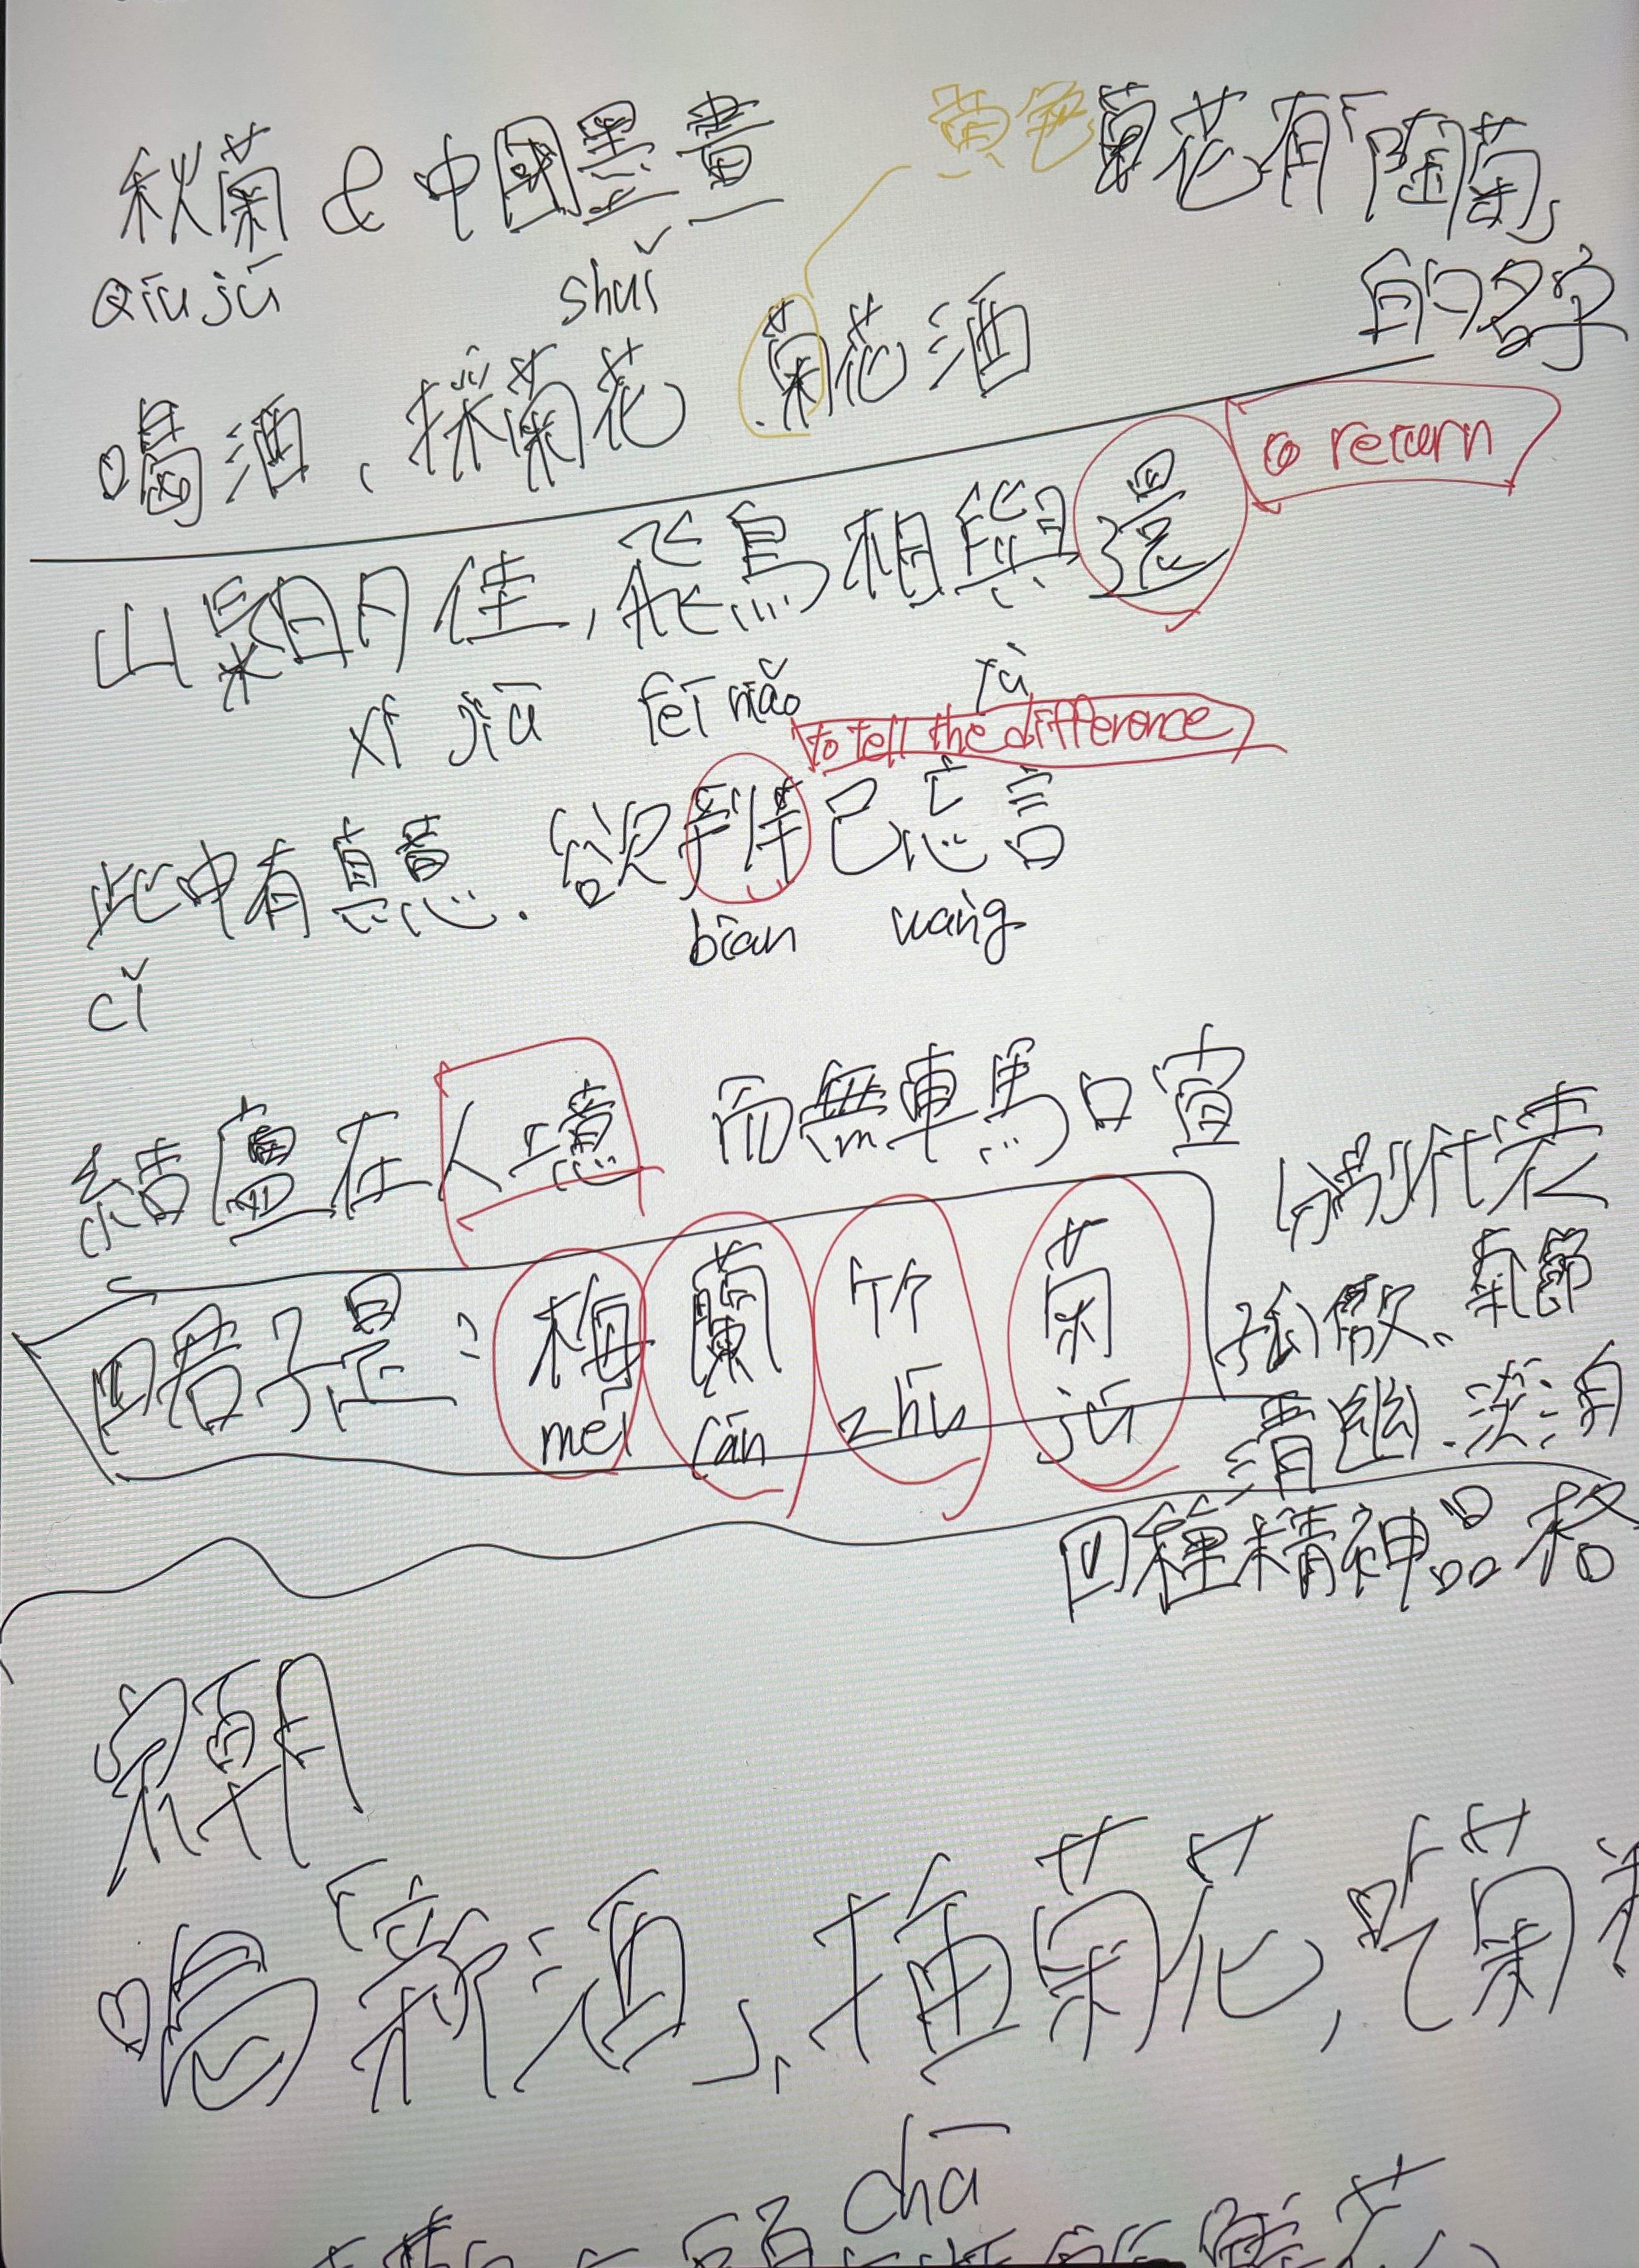 秋菊 & 中國墨畫
Qiū jú
shuǐ
黃色菊花有「陶菊」
的名字
喝酒、採菊花 菊花酒
to return
山氣日夕佳，飛鳥相與還
xī jiā fēi niǎo
to tell the difference
此中有真意．欲辨已忘言
cǐ biàn wàng
結廬在人境 而無車馬喧
四君子是：梅 蘭 竹 菊
méi lán zhú jú
分別代表
孤傲、氣節
清幽．淡泊
四種精神品格
宋朝
喝「新酒」、插菊花，吃菊
chā